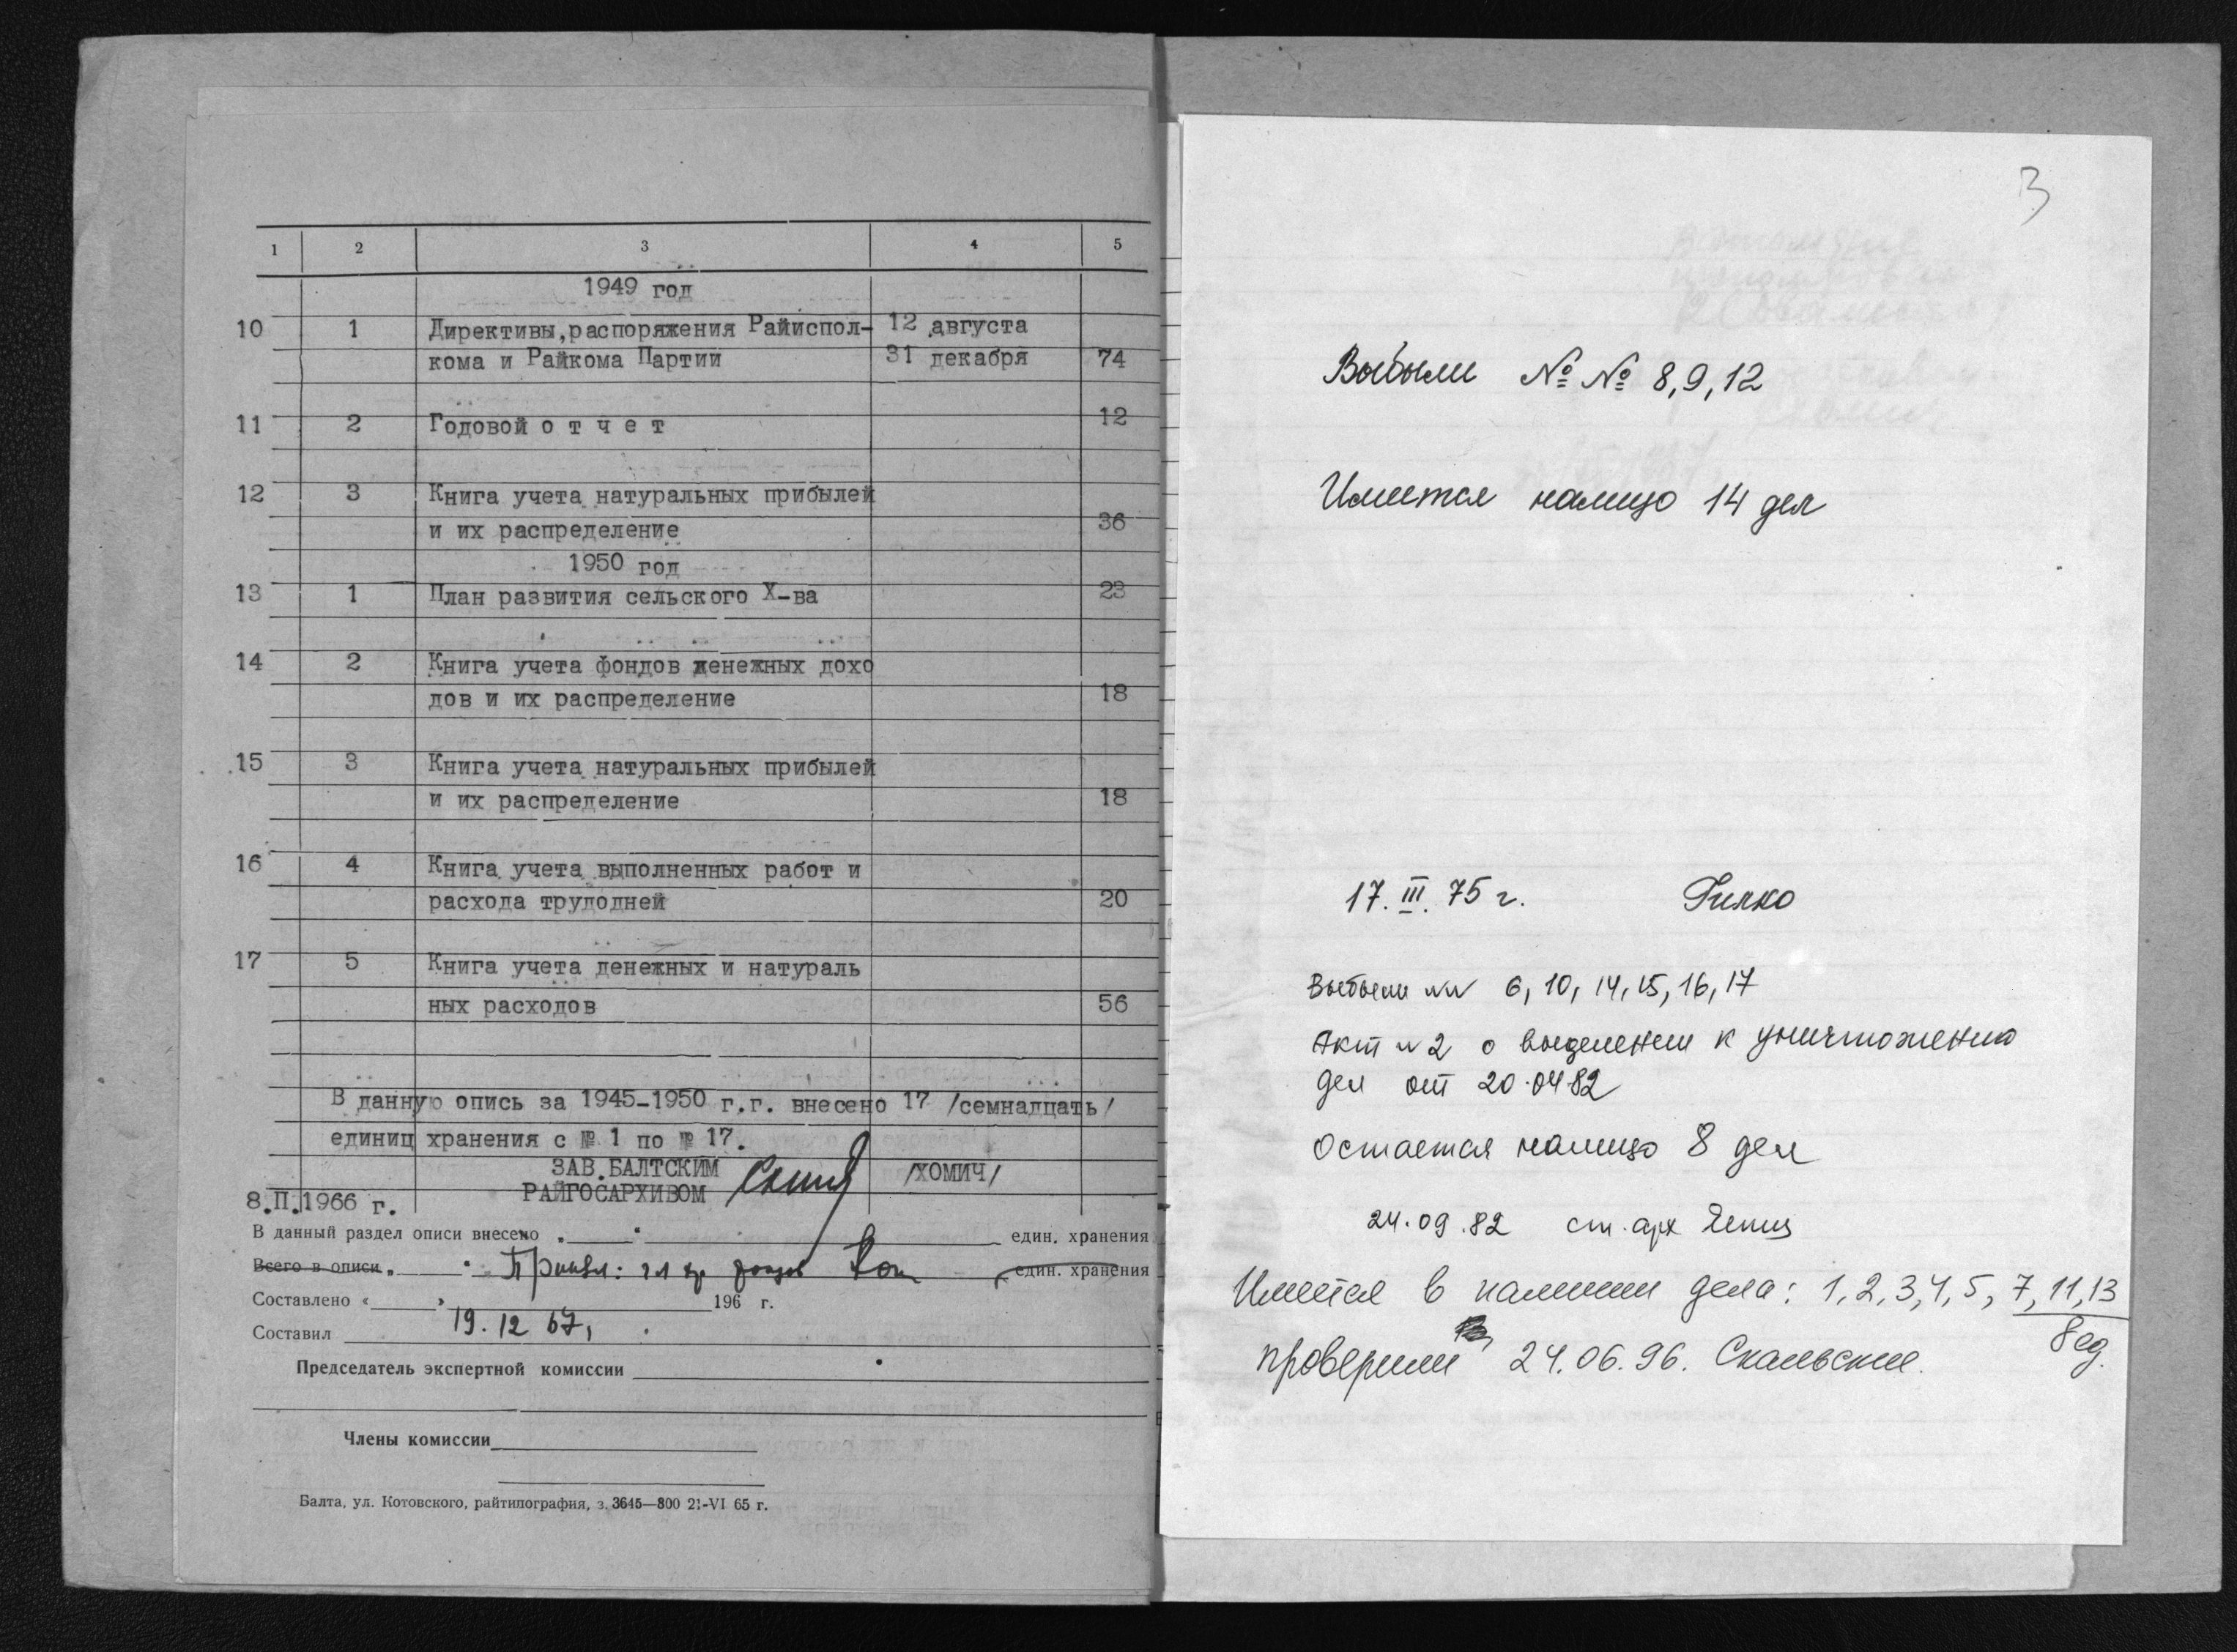 1 2 3 4 5
1949 год
10 1 Директивы,распоряжения Райиспол- 12 августа
кома и Райкома Партии 31 декабря 74
11 2 Годовой о т ч е т 12
12 3 Книга учета натуральных прибылей
и их распределение 36
1950 год
13 1 План развития сельского Х-ва 23
14 2 Книга учета фондов денежных дохо
дов и их распределение 18
15 3 Книга учета натуральных прибылей
и их распределение 18
16 4 Книга учета выполненных работ и
расхода трудодней 20
17 5 Книга учета денежных и натураль
ных расходов 56
В данную опись за 1945-1950 г.г. внесено 17 /семнадцать/
единиц хранения с № 1 по № 17.
ЗАВ.БАЛТСКИМ
РАЙГОСАРХИВОМ /ХОМИЧ/
8.П.1966 г.
В данный раздел описи внесено „ “ един. хранения
Всего в описи „ “ един. хранения
Составлено « » 196 г.
Составил 19.12 67,
Председатель экспертной комиссии
Члены комиссии
Балта, ул. Котовского, райтипография, з. 3645—800 21-VI 65 г.
3
Выбыли №№ 8,9,12
Имеется налицо 14 дел
17.III.75 г. Гилко
Выбыли NN 6, 10, 14, 15, 16, 17
Акт N 2 о выделении к уничтожению
дел от 20.04.82
Остается налицо 8 дел
24.09.82 ст. арх
Имеется в наличии дела: 1,2,3,4,5, 7, 11,13
8 ед.
проверили 24.06.96.